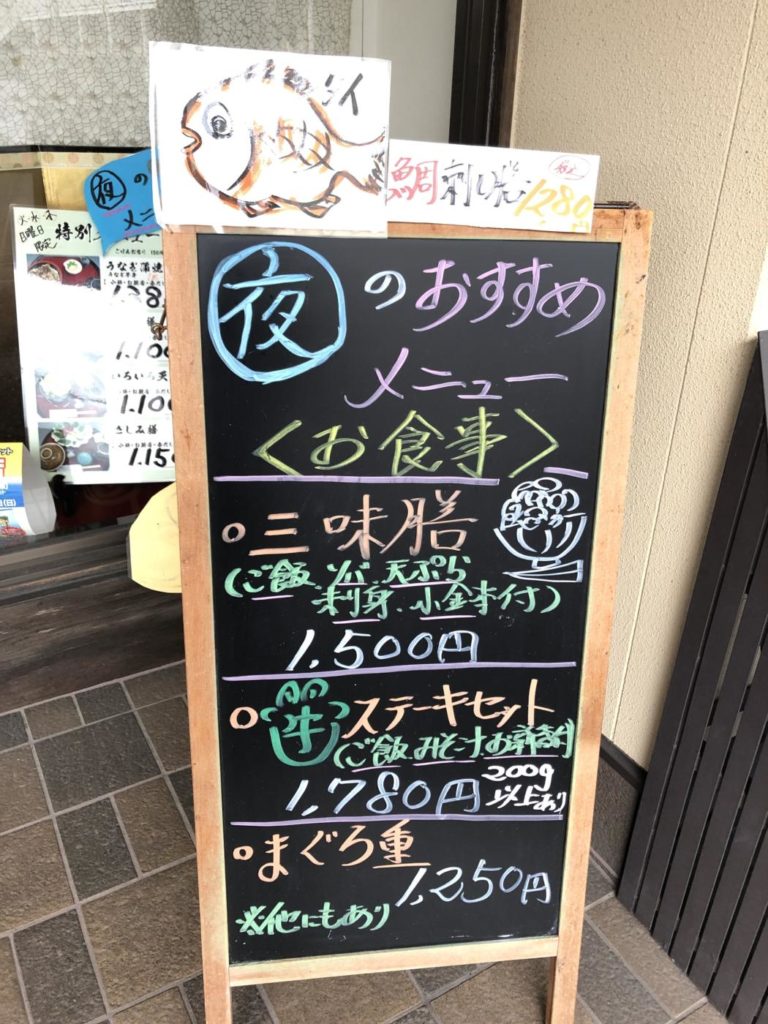 タイ
鯛刺し 1280
夜の
メニュー
火・水・木
日曜日
限定
特別
うなぎ蒲焼
1.100
いろいろ天
1.100
さしみ膳
1.150
夜のおすすめ
メニュー
〈お食事〉
三味膳
(ご飯、ソバ、天ぷら
刺身、小金本付)
1,500円
牛ステーキセット
(ご飯、みそ汁、お新香付)
1,780円 200g
以上あり
まぐろ重
1,250円
※他にもあり